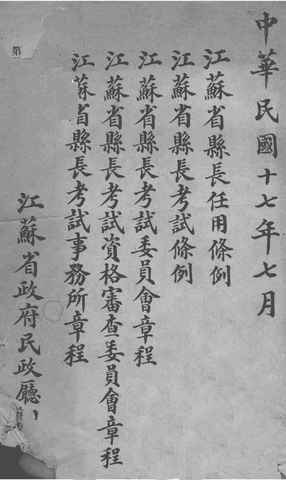 中華民國十七年七月
江蘇省縣長任用條例
江蘇省縣長考試條例
江蘇省縣長考試委員會章程
江蘇省縣長考試資格審查委員會章程
江蘇省縣長考試事務所章程
江蘇省政府民政廳
第